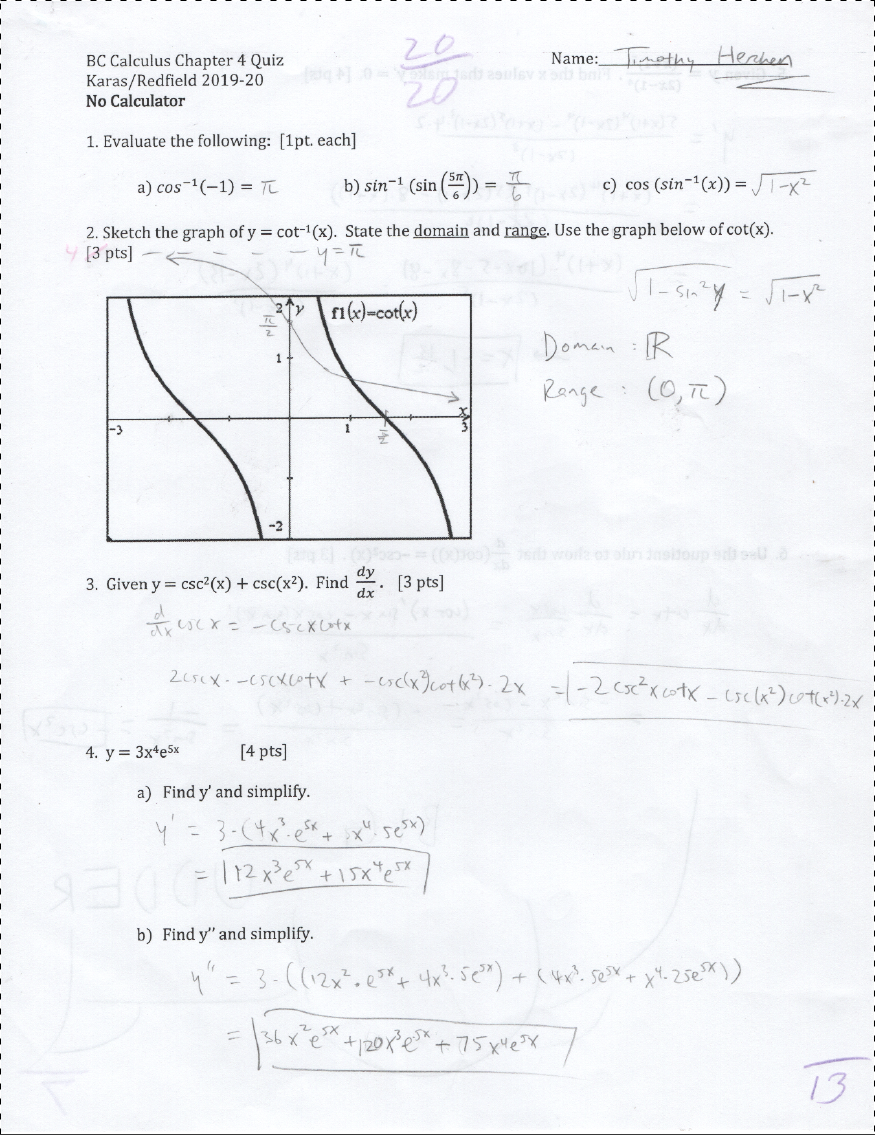 20
20
BC Calculus Chapter 4 Quiz
Karas/Redfield 2019-20
No Calculator
Name: Timothy Herchen
1. Evaluate the following: [1pt. each]
a) cos⁻¹(−1) = π b) sin⁻¹ (sin (5π/6)) = π/6 c) cos (sin⁻¹(x)) = √1-x²
2. Sketch the graph of y = cot⁻¹(x). State the domain and range. Use the graph below of cot(x).
4 [3 pts] y=π
√1-sin²y = √1-x²
2 y f1(x)=cot(x)
π/2
1
Domain : ℝ
Range : (0,π)
-3 1 π/2 x 3
-2
3. Given y = csc²(x) + csc(x²). Find dy/dx. [3 pts]
d/dx csc x = -cscxcotx
2cscx · -cscxcotx + -csc(x²)cot(x²)·2x = -2csc²xcotx - csc(x²)cot(x²)·2x
4. y = 3x⁴e⁵ˣ [4 pts]
a) Find y' and simplify.
y' = 3·(4x³·e⁵ˣ + x⁴·5e⁵ˣ)
= 12x³e⁵ˣ + 15x⁴e⁵ˣ
b) Find y'' and simplify.
y'' = 3·((12x²·e⁵ˣ + 4x³·5e⁵ˣ) + (4x³·5e⁵ˣ + x⁴·25e⁵ˣ))
= 36x²e⁵ˣ + 120x³e⁵ˣ + 75x⁴e⁵ˣ
13